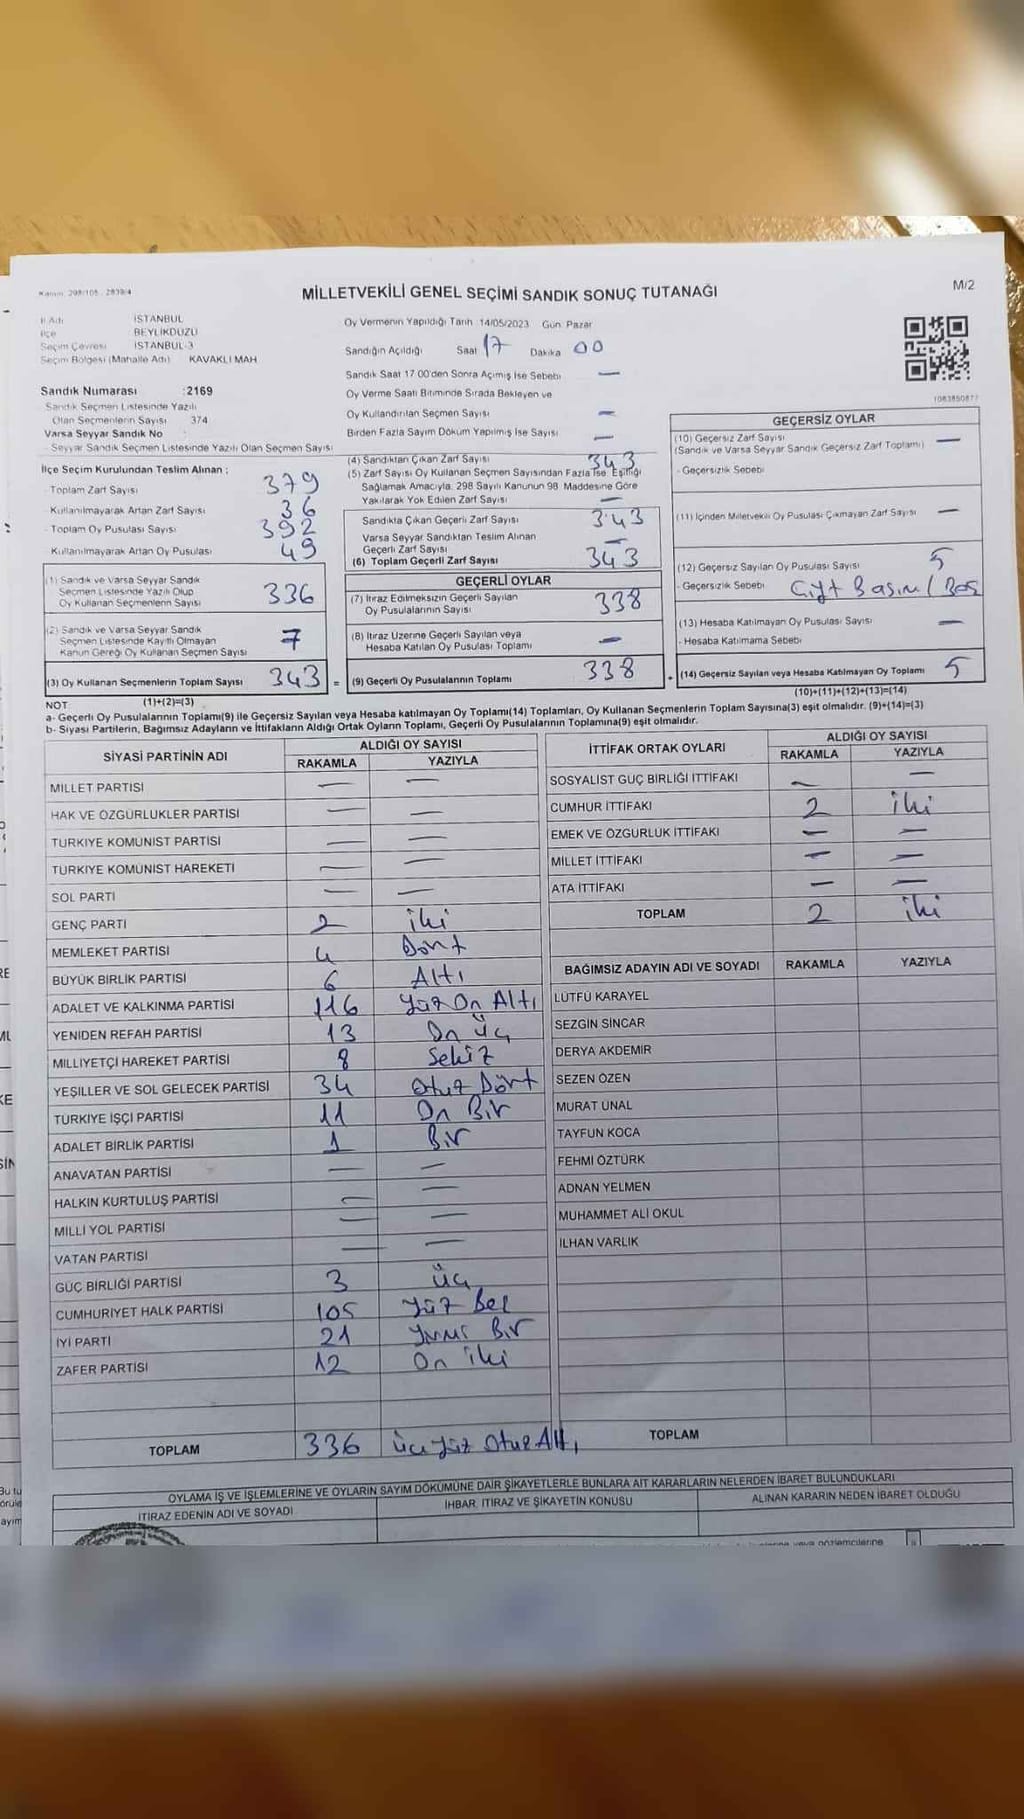 Kanun: 298/105 - 2839/4
MİLLETVEKİLİ GENEL SEÇİMİ SANDIK SONUÇ TUTANAĞI
M/2
İl Adı İSTANBUL
İlçe BEYLİKDÜZÜ
Seçim Çevresi İSTANBUL-3
Seçim Bölgesi (Mahalle Adı) KAVAKLI MAH
Sandık Numarası :2169
Sandık Seçmen Listesinde Yazılı
Olan Seçmenlerin Sayısı 374
Varsa Seyyar Sandık No
- Seyyar Sandık Seçmen Listesinde Yazılı Olan Seçmen Sayısı
Oy Vermenin Yapıldığı Tarih 14/05/2023 Gün Pazar
Sandığın Açıldığı Saat 17 Dakika 00
Sandık Saat 17 00'den Sonra Açılmış İse Sebebi —
Oy Verme Saati Bitiminde Sırada Bekleyen ve
Oy Kullandırılan Seçmen Sayısı —
Birden Fazla Sayım Döküm Yapılmış İse Sayısı —
1063850877
İlçe Seçim Kurulundan Teslim Alınan :
- Toplam Zarf Sayısı 379
- Kullanılmayarak Artan Zarf Sayısı 36
- Toplam Oy Pusulası Sayısı 392
- Kullanılmayarak Artan Oy Pusulası 49
(1) Sandık ve Varsa Seyyar Sandık
Seçmen Listesinde Yazılı Olup
Oy Kullanan Seçmenlerin Sayısı 336
(2) Sandık ve Varsa Seyyar Sandık
Seçmen Listesinde Kayıtlı Olmayan
Kanun Gereği Oy Kullanan Seçmen Sayısı 7
(3) Oy Kullanan Seçmenlerin Toplam Sayısı 343 =
(1)+(2)=(3)
(4) Sandıktan Çıkan Zarf Sayısı 343
(5) Zarf Sayısı Oy Kullanan Seçmen Sayısından Fazla İse, Eşitliği
Sağlamak Amacıyla, 298 Sayılı Kanunun 98 Maddesine Göre
Yakılarak Yok Edilen Zarf Sayısı —
Sandıkta Çıkan Geçerli Zarf Sayısı 343
Varsa Seyyar Sandıktan Teslim Alınan
Geçerli Zarf Sayısı —
(6) Toplam Geçerli Zarf Sayısı 343
GEÇERLİ OYLAR
(7) İtiraz Edilmeksizin Geçerli Sayılan
Oy Pusulalarının Sayısı 338
(8) İtiraz Üzerine Geçerli Sayılan veya
Hesaba Katılan Oy Pusulası Toplamı —
(9) Geçerli Oy Pusulalarının Toplamı 338
GEÇERSİZ OYLAR
(10) Geçersiz Zarf Sayısı —
(Sandık ve Varsa Seyyar Sandık Geçersiz Zarf Toplamı)
- Geçersizlik Sebebi
(11) İçinden Milletvekili Oy Pusulası Çıkmayan Zarf Sayısı —
(12) Geçersiz Sayılan Oy Pusulası Sayısı 5
- Geçersizlik Sebebi Çift Basım / Boş
(13) Hesaba Katılmayan Oy Pusulası Sayısı —
- Hesaba Katılmama Sebebi
(14) Geçersiz Sayılan veya Hesaba Katılmayan Oy Toplamı 5
(10)+(11)+(12)+(13)=(14)
NOT
a- Geçerli Oy Pusulalarının Toplamı(9) ile Geçersiz Sayılan veya Hesaba katılmayan Oy Toplamı(14) Toplamları, Oy Kullanan Seçmenlerin Toplam Sayısına(3) eşit olmalıdır. (9)+(14)=(3)
b- Siyasi Partilerin, Bağımsız Adayların ve İttifakların Aldığı Ortak Oyların Toplamı, Geçerli Oy Pusulalarının Toplamına(9) eşit olmalıdır.
SİYASİ PARTİNİN ADI ALDIĞI OY SAYISI
RAKAMLA YAZIYLA
MİLLET PARTİSİ — —
HAK VE ÖZGÜRLÜKLER PARTİSİ — —
TÜRKİYE KOMÜNİST PARTİSİ — —
TÜRKİYE KOMÜNİST HAREKETİ — —
SOL PARTİ — —
GENÇ PARTİ 2 iki
MEMLEKET PARTİSİ 4 Dört
BÜYÜK BİRLİK PARTİSİ 6 Altı
ADALET VE KALKINMA PARTİSİ 116 Yüz On Altı
YENİDEN REFAH PARTİSİ 13 On üç
MİLLİYETÇİ HAREKET PARTİSİ 8 Sekiz
YEŞİLLER VE SOL GELECEK PARTİSİ 34 Otuz Dört
TÜRKİYE İŞÇİ PARTİSİ 11 On Bir
ADALET BİRLİK PARTİSİ 1 Bir
ANAVATAN PARTİSİ — —
HALKIN KURTULUŞ PARTİSİ — —
MİLLİ YOL PARTİSİ — —
VATAN PARTİSİ — —
GÜÇ BİRLİĞİ PARTİSİ 3 üç
CUMHURİYET HALK PARTİSİ 105 Yüz Beş
İYİ PARTİ 21 Yirmi Bir
ZAFER PARTİSİ 12 On iki
TOPLAM 336 üçyüz Otuz Altı
İTTİFAK ORTAK OYLARI ALDIĞI OY SAYISI
RAKAMLA YAZIYLA
SOSYALİST GÜÇ BİRLİĞİ İTTİFAKI — —
CUMHUR İTTİFAKI 2 iki
EMEK VE ÖZGÜRLÜK İTTİFAKI — —
MİLLET İTTİFAKI — —
ATA İTTİFAKI — —
TOPLAM 2 iki
BAĞIMSIZ ADAYIN ADI VE SOYADI RAKAMLA YAZIYLA
LÜTFÜ KARAYEL
SEZGİN SİNCAR
DERYA AKDEMİR
SEZEN ÖZEN
MURAT ÜNAL
TAYFUN KOCA
FEHMİ ÖZTÜRK
ADNAN YELMEN
MUHAMMET ALİ OKUL
İLHAN VARLIK
TOPLAM
OYLAMA İŞ VE İŞLEMLERİNE VE OYLARIN SAYIM DÖKÜMÜNE DAİR ŞİKAYETLERLE BUNLARA AİT KARARLARIN NELERDEN İBARET BULUNDUKLARI
İTİRAZ EDENİN ADI VE SOYADI İHBAR, İTİRAZ VE ŞİKAYETİN KONUSU ALINAN KARARIN NEDEN İBARET OLDUĞU